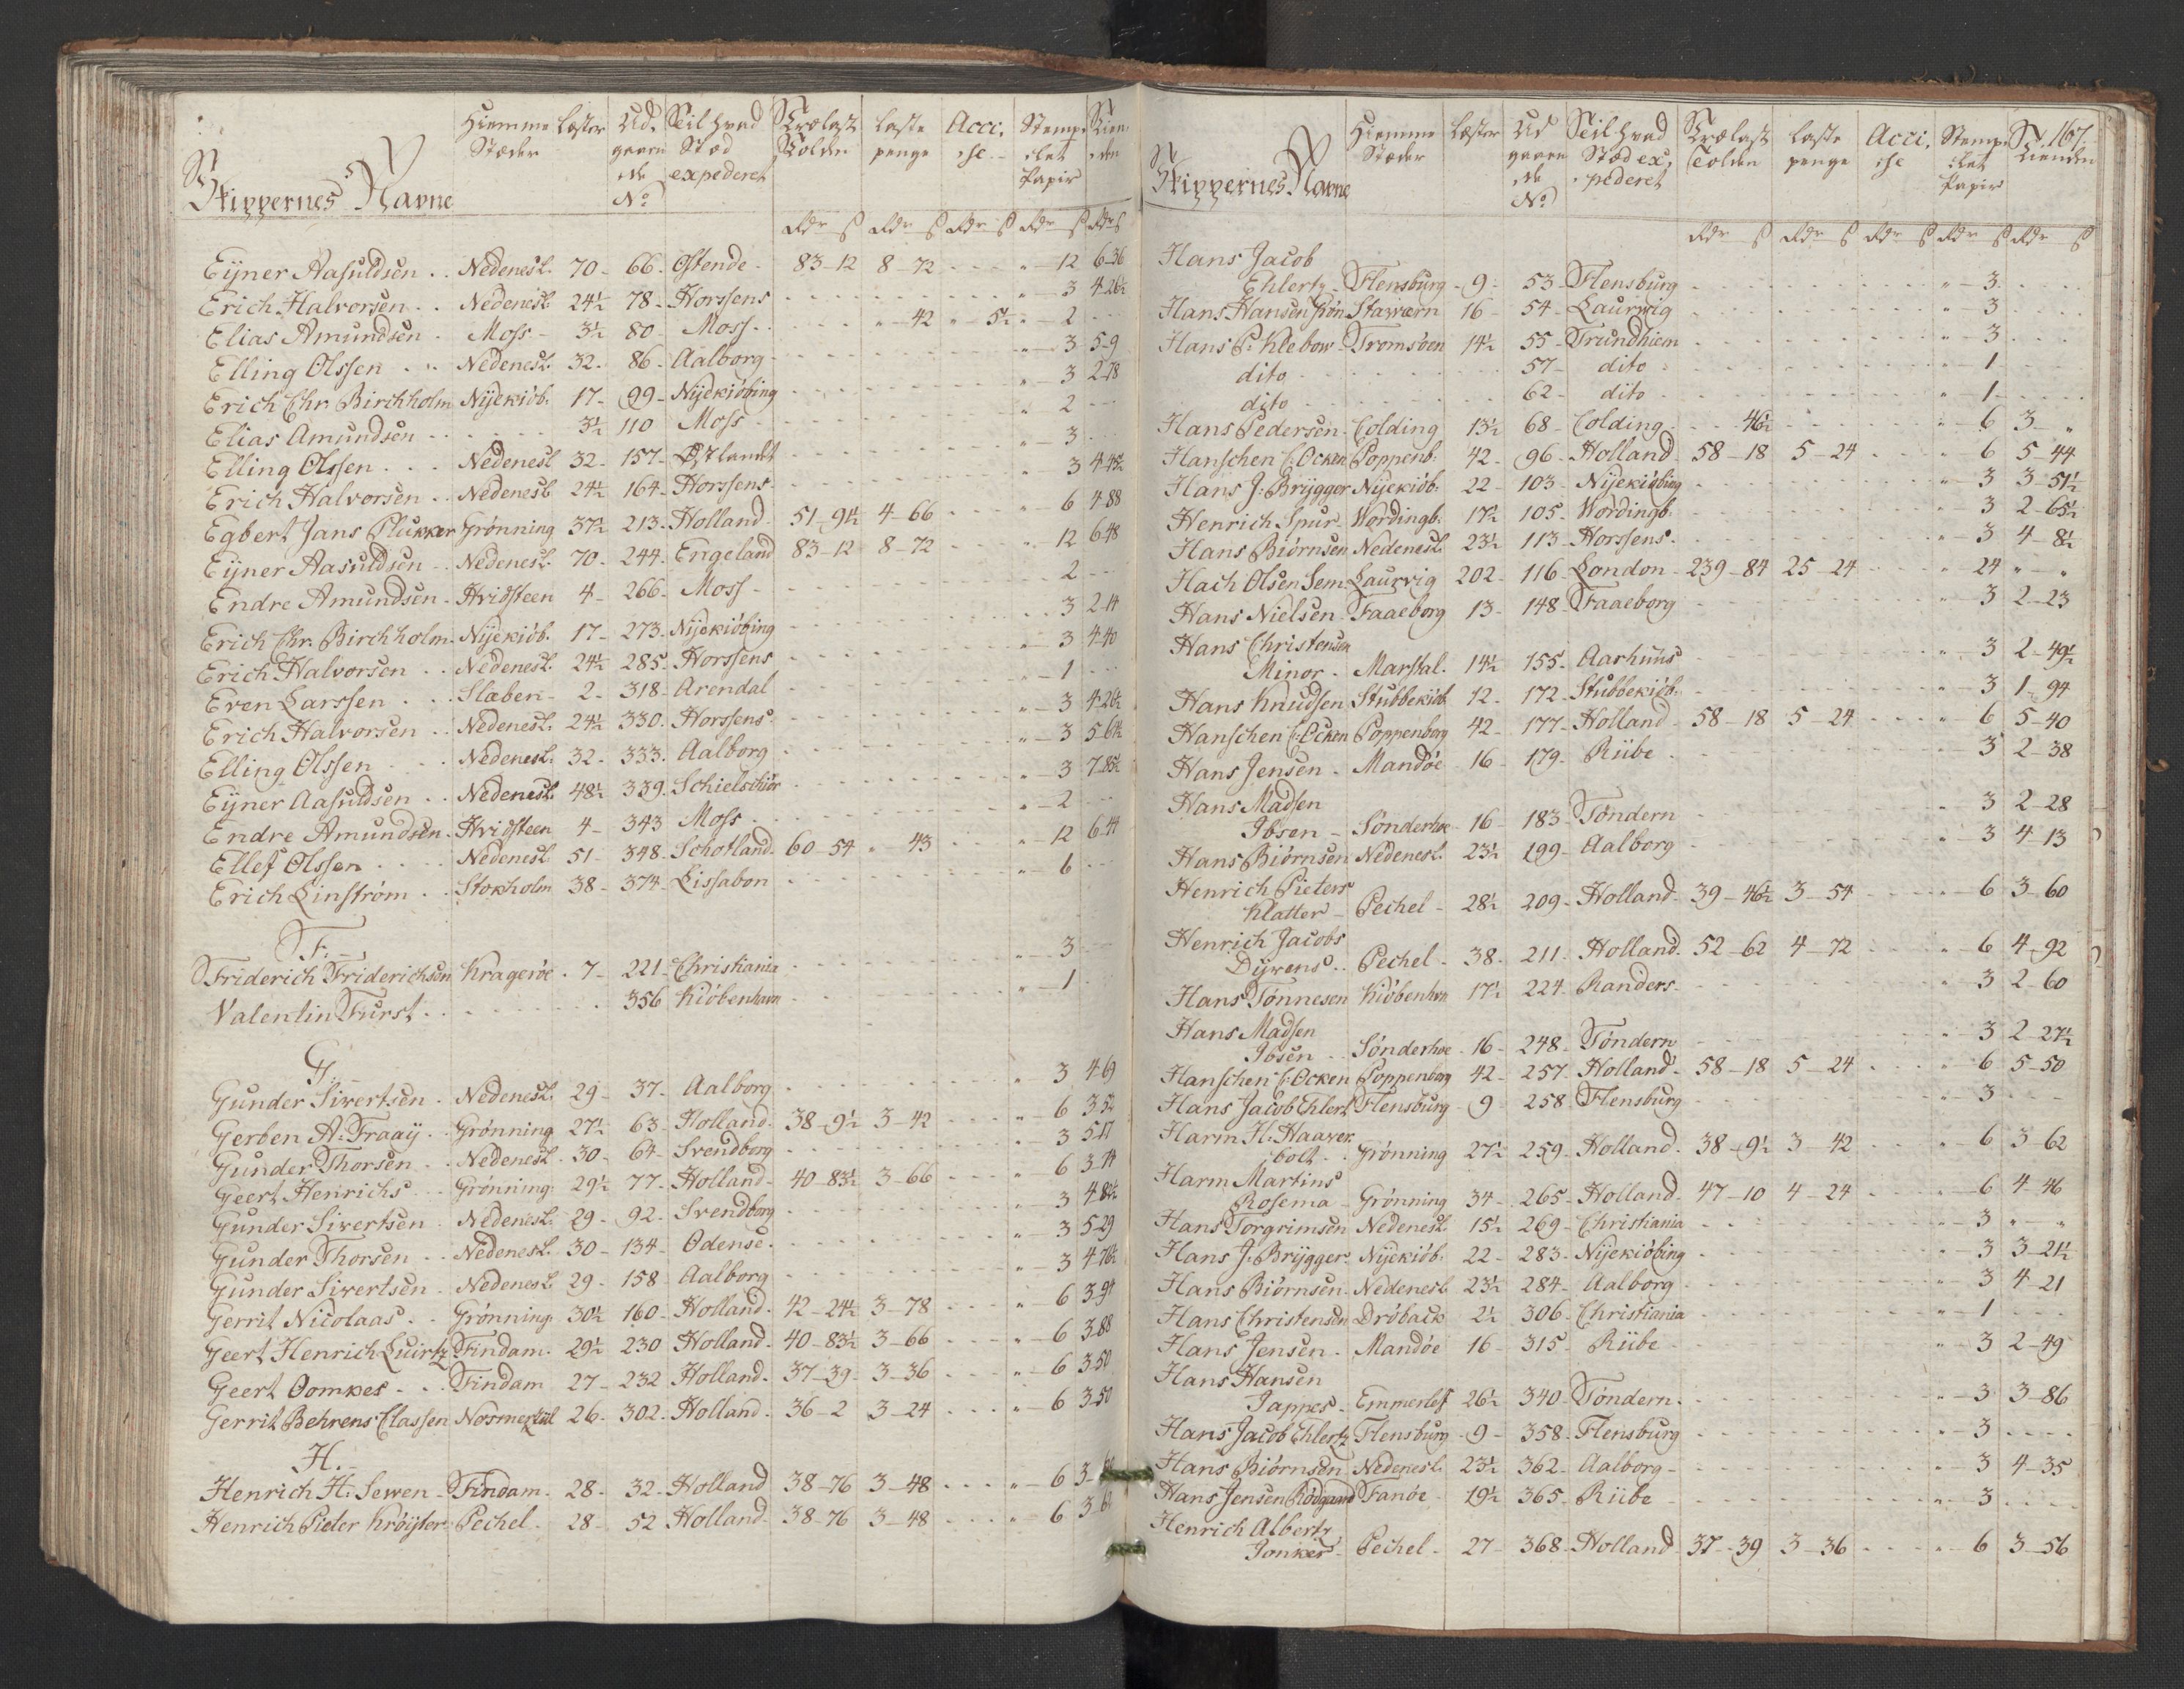 Skippernes Navne Hiemme Stæder Læster Udgaaende No Til hvad Stæd expederet Trælast Tolden Laste penge Accise Stemplet Papir Kienden
Rdr ß Rdr ß Rdr ß Rdr ß Rdr ß
Eÿner Aasuldsen . . Nedenesl. 70 - 66 - Ostende - 83 - 12 8 - 72 - - - " - 12 6 - 36
Erich Halvorsen . . Nedenesl. 24½ 78 - Horssens - - - " - 3 4 - 26½
Elias Amundsen . Moss - 3½ 80 - Moss . . . " - 42 " - 5½ " - 2 - - -
Elling Olssen . . Nedenesl. 32 - 86 - Aalborg - - - " - 3 5 - 9
Erich Chr. Birchholm Nÿekiöb. 17 - 99 - Nÿekiöbing - - - " 3 2 - 18
Elias Amundsen - - - 3½ 110 Moss - - - " 2 - - -
Elling Olssen . . . Nedenesl 32 - 157 - Østlandt - - - " - 3 - - -
Erich Halvorsen . . Nedenesl 24½ 164 - Horssens - - - " 3 4 - 45½
Egbert Jans Plukker Grønning 37½ 213 - Holland - 51 - 91½ 4 - 66 - - - " - 6 4 - 88
Eÿner Aasuldsen - - Nedenesl. 70 - 244 - Engeland 83 - 12 8 - 72 - - - " - 12 6 - 48
Endre Amundsen - Hvidsteen 4 - 266 - Moss - - - 2 - - -
Erich Chr. Birchholm - Nÿekiöb. 17 - 273 - Nÿekiöbing - - - 3 2 - 14
Erich Halvorsen . . Nedenesl. 24½ 285 - Horssens - - - " 3 4 - 40
Even Larssen . . Slæben - 2 - 318 - Arendal - - - " - 1 - - -
Erich Halvorsen . . Nedenesl. 24½ 330 - Horssens - - - " - 3 4 - 26½
Elling Olssen . . . Nedenesl. 32 - 333 - Aalborg - - - " - 3 5 - 6½
Eÿner Aasuldsen . . Nedenesl. 48½ 339 - Schielschiör - - - " - 3 7 - 85½
Endre Amundsen - Hvidsteen 4 - 343 Moss - - - " - 2 - - -
Ellef Olssen . . . Nedenesl 51 - 348 - Schotland - 60 - 54 " - 43 - - - " - 12 6 - 44
Erich Linstrøm . . Stokholm 38 - 374 - Lissabon - - - " - 6 - - -
F.
Friderich Friderichsen Kragerøe . 7 - 221 - Christiania - - - " - 3 - - -
Valentin Fürst . . . 356 Kiöbenhavn - - - " - 1 -
G.
Gunder Sivertsen . Nedenesl. 29 - 37 - Aalborg - - - " 3 4 - 69
Gerben A: Fraaÿ . . Grønning 27½ 63 - Holland - 38 - 9½ 3 - 42 - - - " - 6 3 - 52
Gunder Thorsen . . Nedenesl. 30 - 64 - Svendborg - - - " 3 5 - 17
Geert Henrichs . . Grønning 29½ 77 - Holland - 40 - 83½ 3 - 66 - - - " - 6 3 - 74
Gunder Sivertsen . Nedenesl. 29 - 92 - Svendborg - - - " - 3 4 - 84½
Gunder Thorsen . . Nedenesl. 30 - 134 - Odense - - - " - 3 5 - 29
Gunder Sivertsen . Nedenesl 29 - 158 - Aalborg - - - " - 3 4 - 76½
Gerrit Nicolaas . . Grønning 30½ 160 - Holland - 42 - 24½ 3 - 78 - - - " - 6 3 - 94
Geert Henrich Luirtz Findam - 29½ 230 Holland - 40 - 83½ 3 - 66 - - - " - 6 3 - 88
Geert Oomkes - . . Findam 27 - 232 Holland - 37 - 39 - 3 - 36 - - - " - 6 3 - 50
Gerrit Behrens Classen 26 - 302 - Holland - 36 - 2 3 - 24 - - - " - 6 3 - 50
H.
Henrich H: Sewen - Findam - 28 - 32 - Holland 38 - 76 3 - 48 - - - " - 6 3 -
Henrich Pieter Krøÿter Pechel - 28 - 52 Holland - 38 - 76 3 - 48 - - - " - 6 3 -
167.
Skippernes Navne Hiemme Stæder Læster Udgaaende No Til hvad Stæd expederet Trælast Tolden Laste penge Accise Stemplet Papir Kienden
Rdr ß Rdr ß Rdr ß Rdr ß Rdr ß
Hans Jacob
Ehlertz - Flensburg - 9 - 53 - Flensburg - - - " - 3 - - -
Hans Hansen Grön Stavværn 16 - 54 - Laurvig - - - " - 3 - - -
Hans P: Klebow - Tromsöen 14½ 55 - Trundhiem - - - " - 3 - - -
dito - - - 57 - dito - - - " - 1 - - -
dito - - - 62 - dito - - - " 1 - - -
Hans Pedersen - Colding 13½ 68 - Colding - - - 46½ - - - " - 6 3 - "
Hanschen C: Ocken Poppenb. 42 - 96 - Holland - 58 - 18 5 - 24 - - - " 6 5 - 44
Hans J: Brÿgger Nÿekiöb. 22 - 103 - Nÿekiöbing - - - " - 3 3 - 51½
Henrich Spur - Wordingb. 17½ 105 - Wordingb. - - - 3 2 - 65½
Hans Biörnsen Nedenesl. 23½ 113 - Horssens - - - " - 3 4 - 8½
Hach Olsen Sem - Laurvig 202 - 116 - London - 239 - 84 25 - 24 - - - " - 24 " - "
Hans Nielsen - Faaeborg 13 - 148 - Faaeborg - - - " - 3 2 - 23
Hans Christensen
Minor - Marstal - 14½ 155 - Aarhuus - - - " - 3 2 - 49½
Hans Knudsen Stubbekiöb. 12 - 172 - Stubbekiöb. - - - " - 3 1 - 94
Hanschen C: Ocken Poppenborg 42 - 177 - Holland - 58 - 18 5 - 24 - - - " 6 5 - 40
Hans Jensen - Mandöe 16 - 179 - Riibe - - - " - 3 2 - 38
Hans Madsen
Ibsen - Sönderhoe - 16 - 183 - Töndern - - - " 3 2 - 28
Hans Biörnsen Nedenesl. 23½ 199 - Aalborg - - - " 3 4 - 13
Henrich Pieters
Klatter - Pechel - 28½ 209 - Holland - 39 - 46½ 3 - 54 - - - " - 6 3 - 60
Henrich Jacobs
Dÿrens . . Pechel - 38 - 211 - Holland - 52 - 62 4 - 72 - - - " - 6 4 - 92
Hans Tönnesen Kiöbenhvn 17½ 224 - Randers - - - " - 3 2 - 60
Hans Madsen
Ibsen . . Sönderhoe - 16 - 248 - Töndern - - - " - 3 2 - 27½
Hanschen C: Ocken Poppenborg 42 - 257 - Holland - 58 - 18 5 - 24 - - - " 6 5 - 50
Hans Jacob Ehlert Flensburg - 9 - 258 Flensburg - - - " - 3 - - -
Harm H: Haaver
bolt . . Grønning 27½ 259 - Holland - 38 - 9½ 3 - 42 - - - " - 6 3 - 62
Harm Martins
Rosema - Grønning 34 - 265 - Holland - 47 - 10 4 - 24 - - - " - 6 4 - 46
Hans Torgrimsen Nedenesl. 15½ 269 - Christiania - - - " - 3 " - "
Hans J: Brÿgger - Nÿekiöb. 22 - 283 - Nÿekiöbing - - - " - 3 3 - 21½
Hans Biörnsen - Nedenesl 23½ 284 - Aalborg - - - " - 3 4 - 21
Hans Christensen Dröback 2½ 306 - Christiania - - - " - 1 - - -
Hans Jensen - Mandöe 16 - 315 - Riibe - - - " 3 2 - 49
Hans Hansen
Jappes - Emmerlef 26½ 340 - Töndern - - - " - 3 3 - 86
Hans Jacob Ehlertz Flensburg - 9 - 358 - Flensburg - - - " - 3 - - -
Hans Biörnsen Nedenesl. 23½ 362 - Aalborg - - - " - 3 4 - 35
Hans Jensen Rödgaard Fanöe - 19½ 365 - Riibe - - - " - 3 - - -
Henrich Albertz
Jonker - Pechel - 27 - 368 - Holland - 37 - 39 3 - 36 - - - " - 6 3 - 56